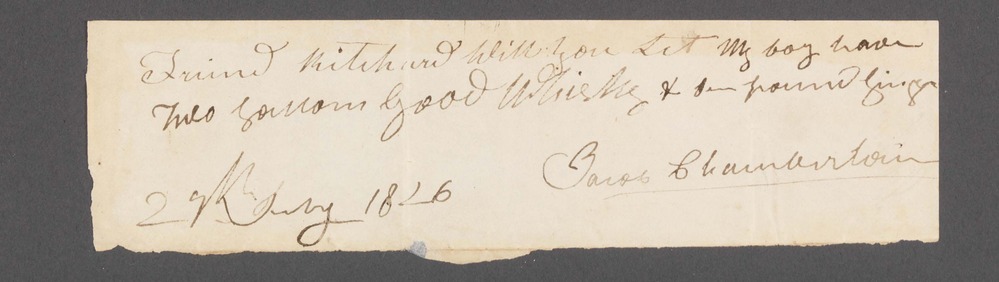 Friend Kitchard Will you Let My boy have
two gallons Good Whiskey & one pound ginge
Jacob Chamberlain
29th July 1826